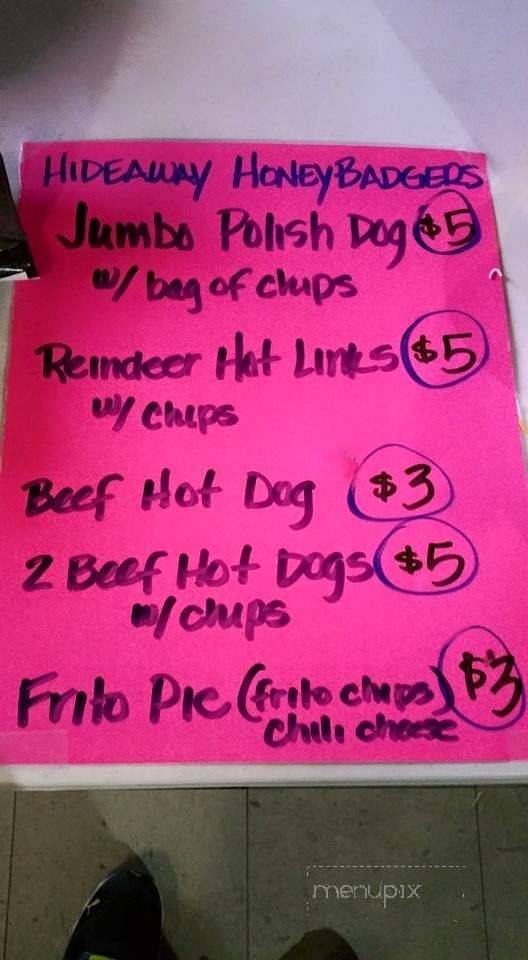 HIDEAWAY HONEYBADGERS
Jumbo Polish Dog $5
w/ bag of chips
Reindeer Hot Links $5
w/ chips
Beef Hot Dog $3
2 Beef Hot Dogs $5
w/ chips
Frito Pie (frito chips) $3
chili cheese
menupix